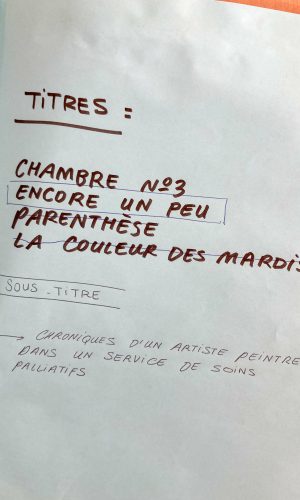 TITRES :
CHAMBRE N°3
ENCORE UN PEU
PARENTHÈSE
LA COULEUR DES MARDIS
SOUS-TITRE
→ CHRONIQUES D'UN ARTISTE PEINTRE
DANS UN SERVICE DE SOINS
PALLIATIFS